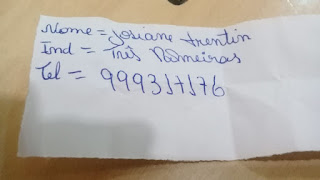 Nome = Josiane trentin
Ind = Três Pameiras
Tel = 999317176